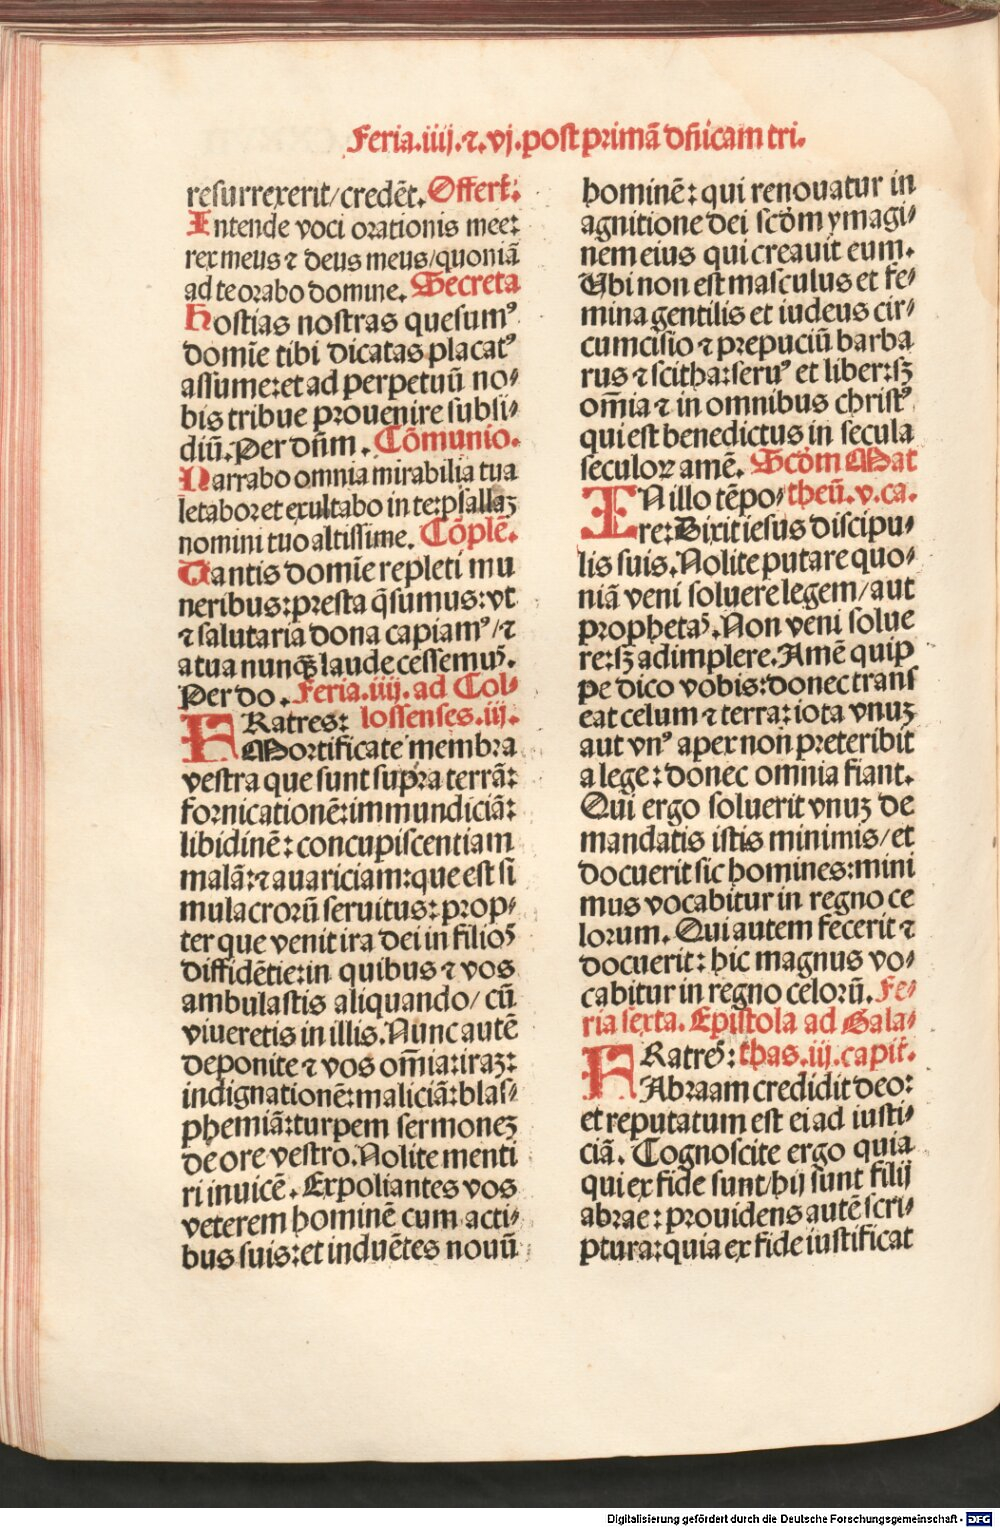 Feria.iiij.⁊.vj.post primā dn̄icam tri.
resurrexerit/credēt. Offert̄:
Intende voci orationis mee:
rex meus ⁊ deus meus/quoniā
ad te orabo domine. Secreta
Hostias nostras quesumꝰ
domīe tibi dicatas placatꝰ
assume:et ad perpetuū no⸗
bis tribue prouenire subsi⸗
diū.Per dn̄m. Cōmunio.
Narrabo omnia mirabilia tua
letabor et exultabo in te:psallaꝫ
nomini tuo altissime. Cōplē.
Tantis domīe repleti mu
neribus:presta q̄sumus:vt
⁊ salutaria dona capiamꝰ/⁊
a tua nunqꝫ laude cessemuꝰ.
Per do. Feria.iiij. ad Col⸗
FRatres: lossenses.iij.
Mortificate membra
vestra que sunt supra terrā:
fornicationē:immundiciā:
libidinē:concupiscentiam
malā:⁊ auariciam:que est si
mulacrorū seruitus:prop⸗
ter que venit ira dei in filioꝰ
diffidētie:in quibus ⁊ vos
ambulastis aliquando/cū
viueretis in illis.Nunc autē
deponite ⁊ vos om̄ia:iraꝫ:
indignationē:maliciā:blas⸗
phemiā:turpem sermoneꝫ
de ore vestro.Nolite menti
ri inuicē. Expoliantes vos
veterem hominē cum acti⸗
bus suis:et induētes nouū
hominē:qui renouatur in
agnitione dei scd̄m ymagi⸗
nem eius qui creauit eum.
Ubi non est masculus et fe⸗
mina gentilis et iudeus cir⸗
cumcisio ⁊ prepuciū barba
rus ⁊ scitha:seruꝰ et liber:sꝫ
om̄ia ⁊ in omnibus christꝰ
qui est benedictus in secula
seculoꝝ amē. Scd̄m Mat
IN illo tēpo⸗ theū.v.ca.
re:Dixit iesus discipu⸗
lis suis.Nolite putare quo⸗
niā veni soluere legem/aut
prophetaꝰ.Non veni solue
re:sꝫ adimplere.Amē quip
pe dico vobis:donec trans
eat celum ⁊ terra:iota vnuꝫ
aut vnꝰ apex non preteribit
a lege:donec omnia fiant.
Qui ergo soluerit vnuꝫ de
mandatis istis minimis/et
docuerit sic homines:mini
mus vocabitur in regno ce
lorum. Qui autem fecerit ⁊
docuerit:hic magnus vo⸗
cabitur in regno celorū. Fe⸗
ria sexta. Epistola ad Gala⸗
FRatreꝰ: thas.iij.capit̄.
Abraam credidit deo:
et reputatum est ei ad iusti⸗
ciā. Cognoscite ergo quia
qui ex fide sunt/hij sunt filij
abrae:prouidens autē scri⸗
ptura:quia ex fide iustificat
Digitalisierung gefördert durch die Deutsche Forschungsgemeinschaft - DFG